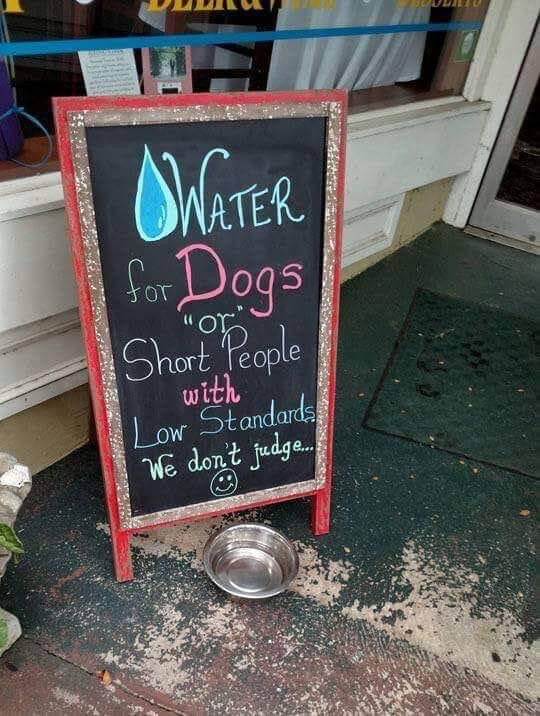 WATER
for Dogs
"or"
Short People
with
Low Standards
We don't judge...